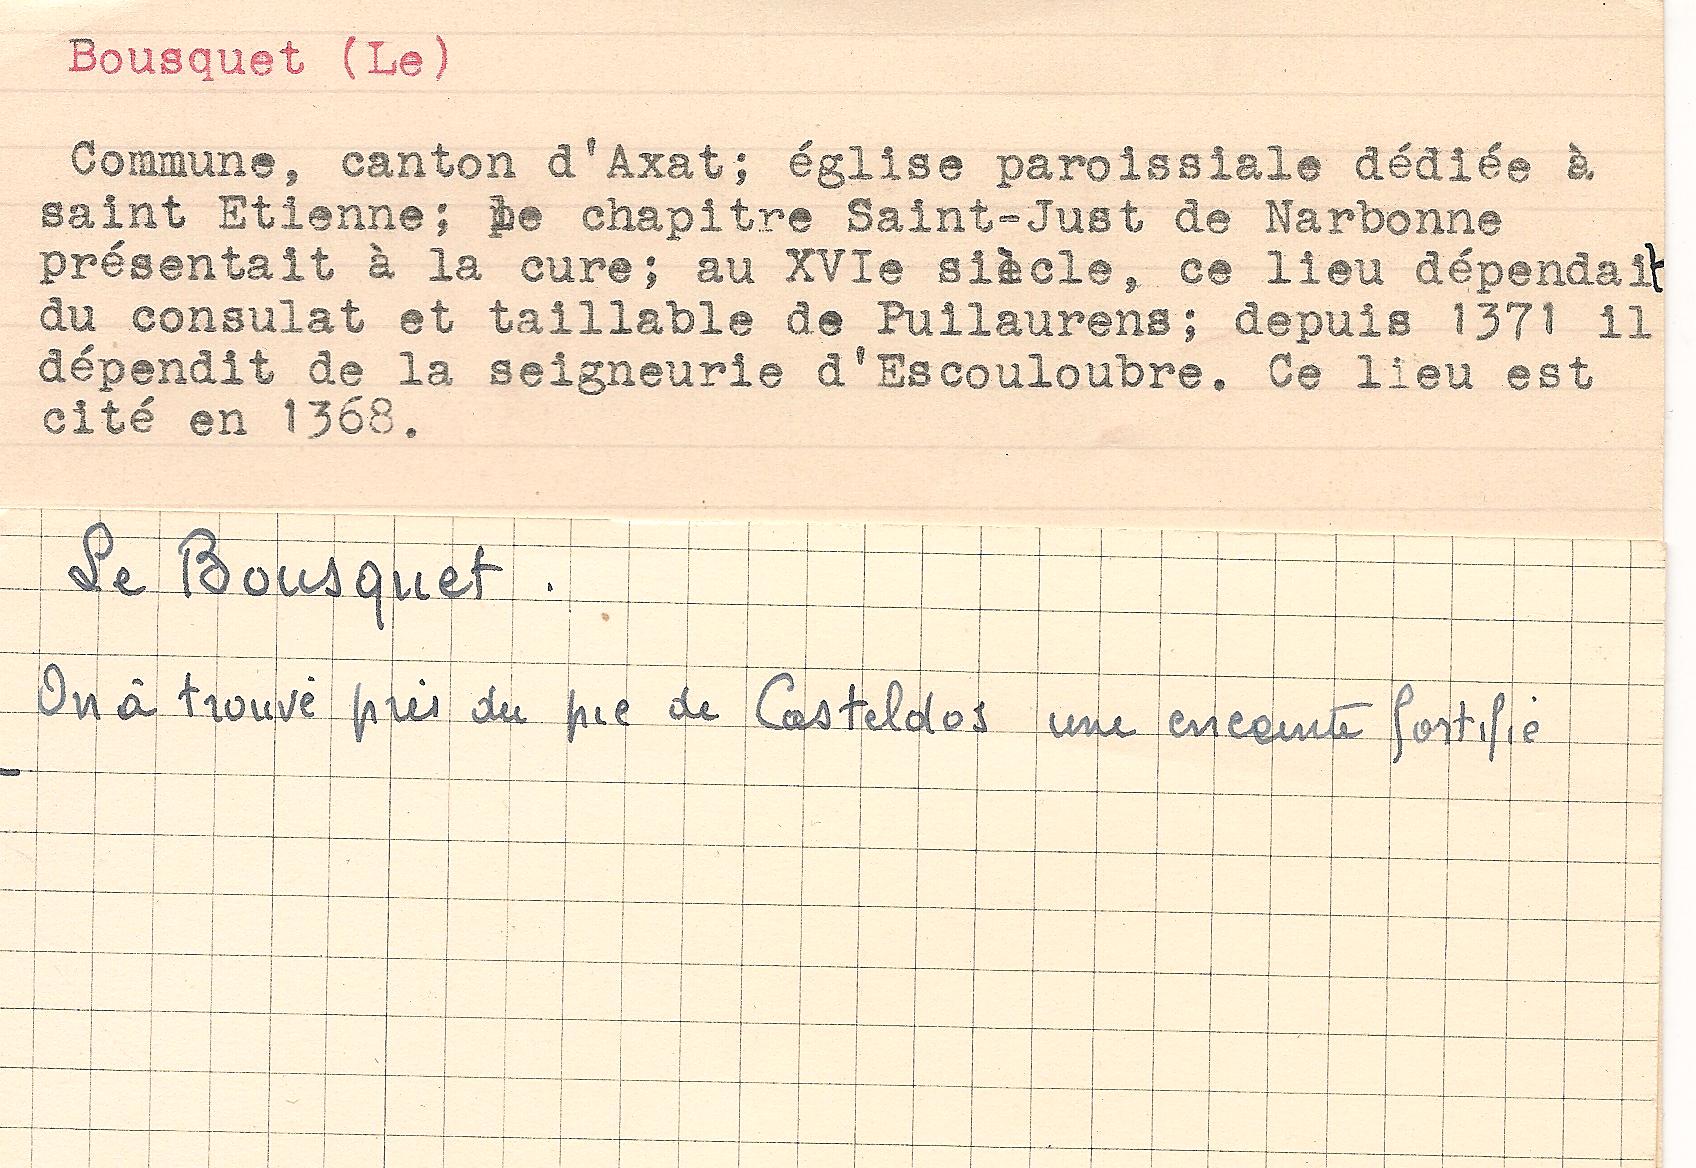 Bousquet (Le)
Commune, canton d'Axat; église paroissiale dédiée à
saint Etienne; le chapitre Saint-Just de Narbonne
présentait à la cure; au XVIe siècle, ce lieu dépendait
du consulat et taillable de Puilaurens; depuis 1371 il
dépendit de la seigneurie d'Escouloubre. Ce lieu est
cité en 1368.
Le Bousquet.
On â trouvé près du pic de Casteldos une enceinte fortifié